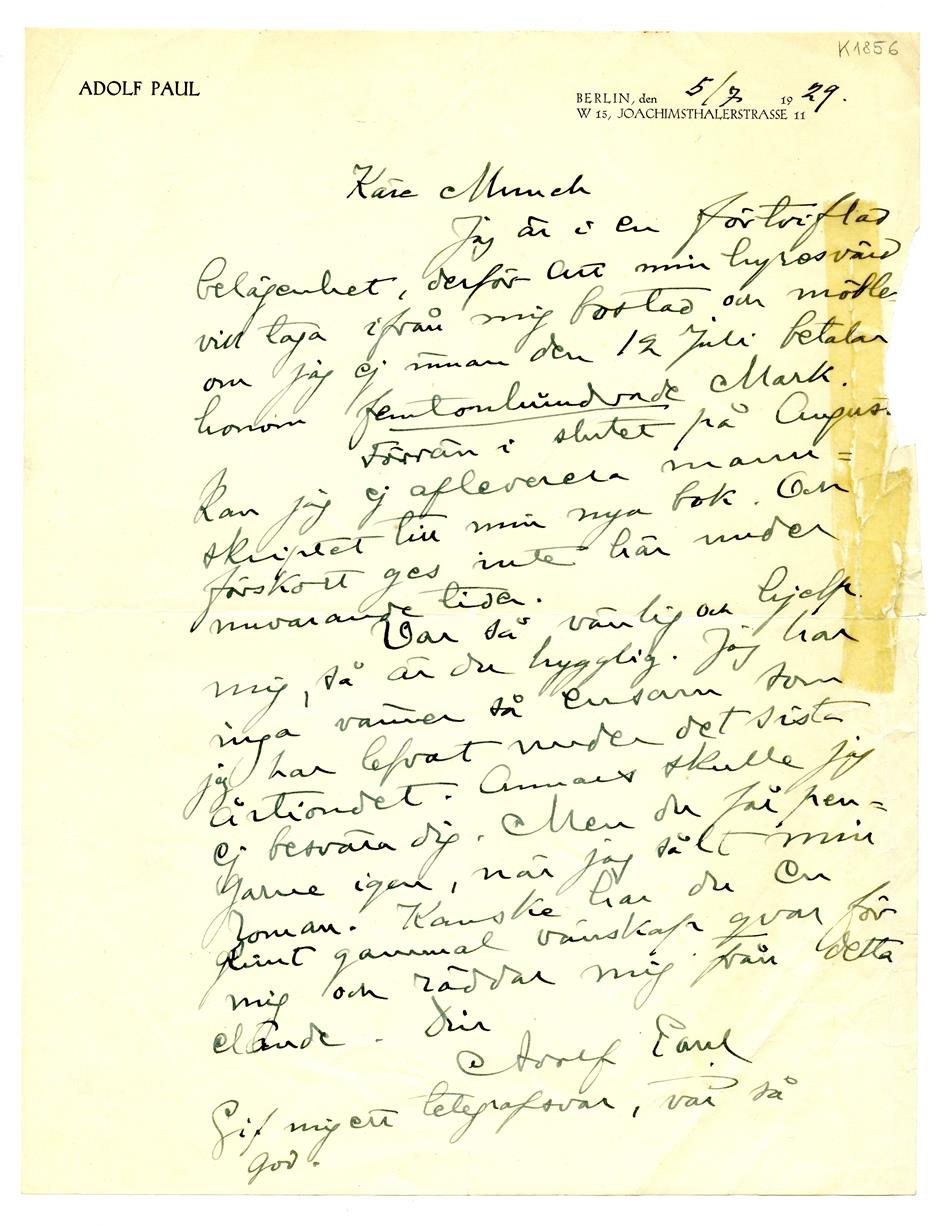 K1856
ADOLF PAUL
BERLIN, den 5/7 1929.
W 15, JOACHIMSTHALERSTRASSE 11
Käre Munch
Jag är i en förtviflad
belägenhet, derför att min hyresvärd
vill taga ifrån mig bostad och möble
om jag ej innan den 12 Juli betalar
honom femtonhundrade Mark.
Förrän i slutet på Augus.
kan jag ej afleverera manu=
skriptet till min nya bok. Och
förskott ges inte här under
nuvarande tider.
Var så vänlig och hjelp
mig, så är du hygglig. Jag har
inga vänner så ensam som
jag har lefvat under det sista
årtiondet. Annars skulle jag
ej besvära dig. Men du får pen=
garne igen, när jag sålt min
roman. Kanske har du en
glimt gammal vänskap qvar för
mig och räddar mig från detta
elände. Din
Adolf Paul
Gif mig ett telegrafsvar, var så
god.